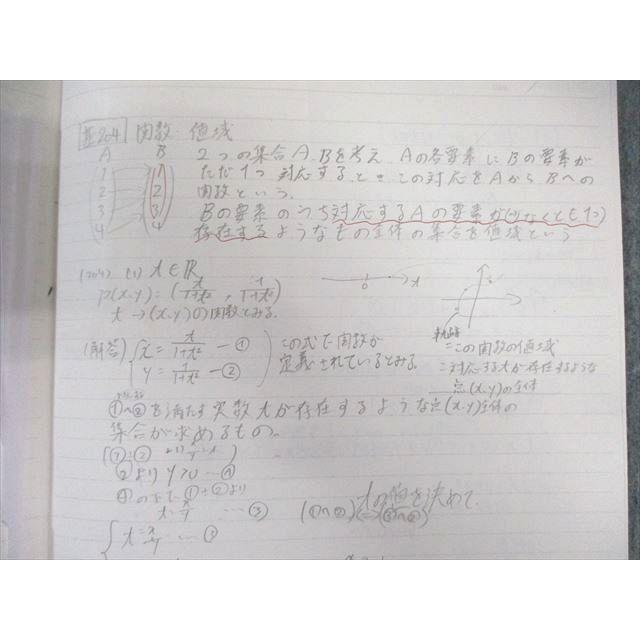 204 関数 値域
A B
1 1
2 2
3 3
4 4
2つの集合A、Bを考え Aの各要素にBの要素が
ただ1つ対応するとき この対応をAからBへの
関数という。
Bの要素のうち対応するAの要素が(少なくとも1つ)
存在するようなもの全体の集合を値域という
(204) (1) t∈R
P(x,y)=(t/1+t², 1/1+t²)
t→(x,y)の関数とみる。
0 t
軌跡
=この関数の値域
=対応するtが存在するような
点(x,y)の全体
(解答) x = t/1+t² ―①
y = 1/1+t² ―②
この式で関数が
定義されているとみる。
①∧②を満たす実数tが存在するような点(x,y)全体の
集合が求めるもの。
②より y>0 ―④
④のもとで ①÷②より
t=x/y ―③
(①∧②)⇔(③∧②)
tの値を決めて
t=x/y